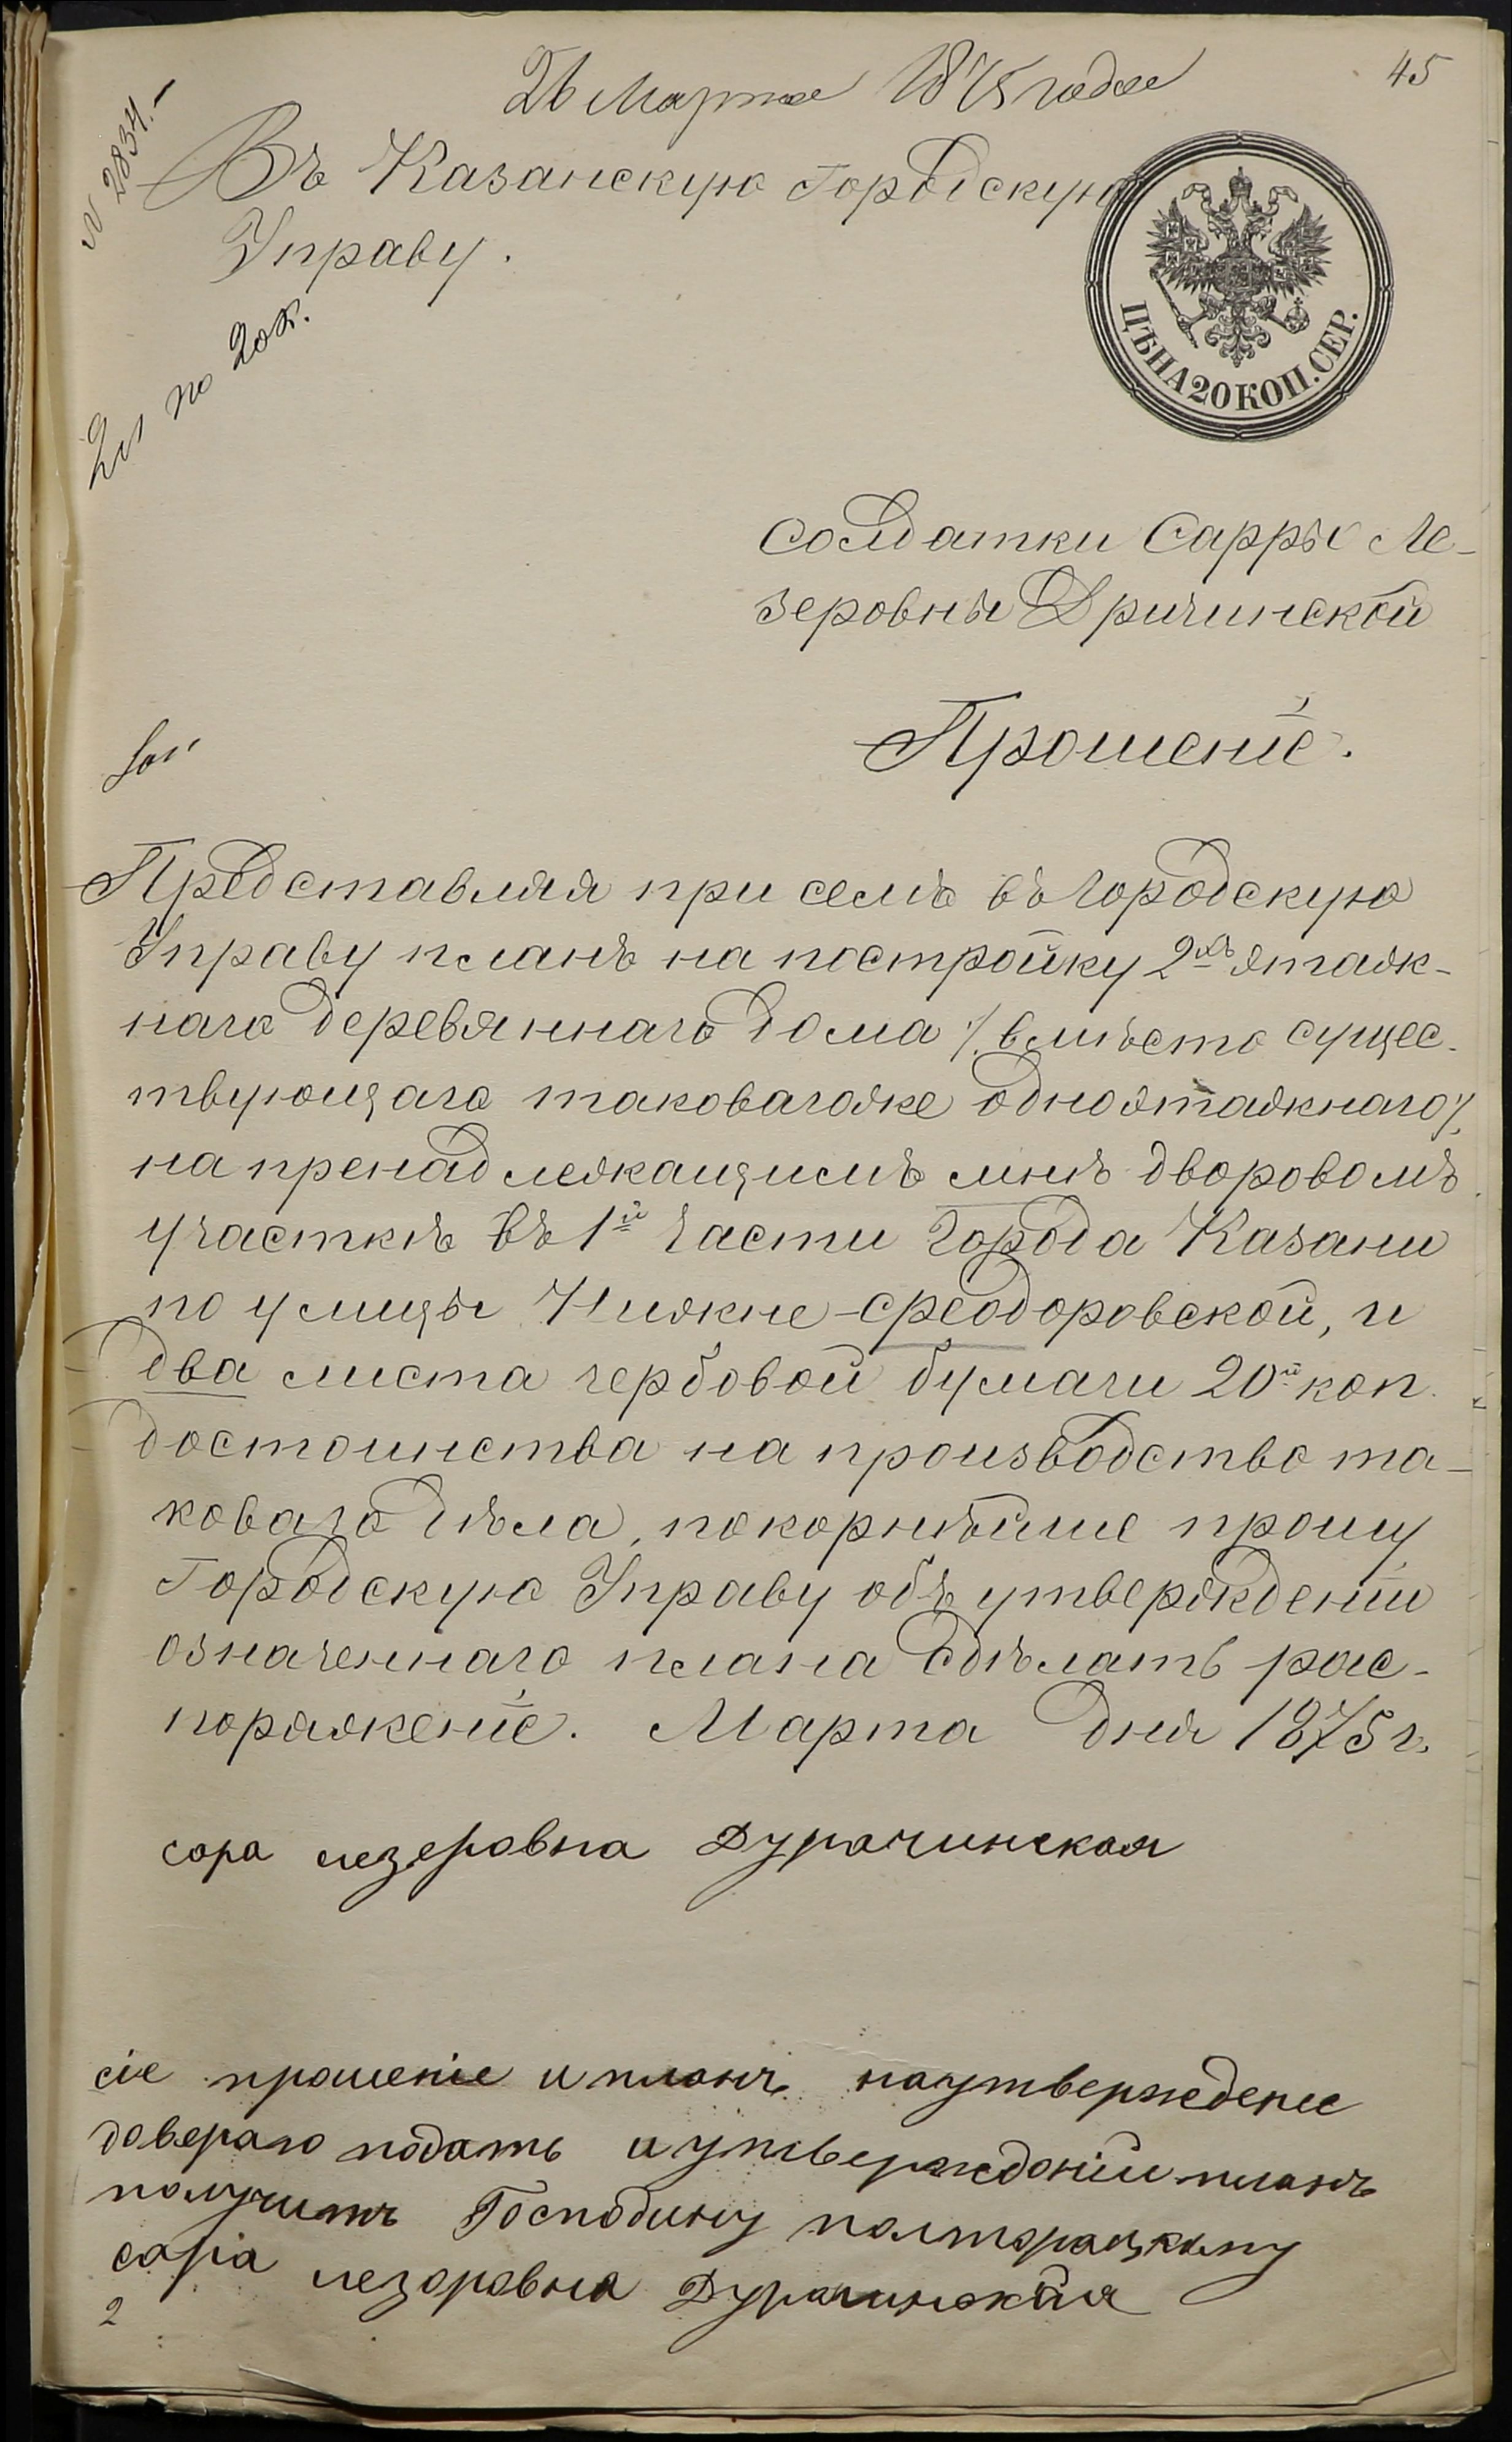 26 Марта 1875 года
45
N 2834.
Въ Казанскую Городскую
Управу.
2 л по 20 к.
ЦѢНА 20 КОП. СЕР.
Солдатки Сарры Ле-
зеровны Дричинской
Прошеніе.
Представляя при семъ въ Городскую
Управу планъ на постройку 2хъ этаж-
наго деревяннаго дома /. вмѣсто сущес-
твующаго таковагоже одноэтажнаго ./.
на пренадлежащимъ мнѣ дворовомъ
участкѣ въ 1й части города Казани
по улицы Нижне-Ѳеодоровской, и
два листа гербовой бумаги 20й коп.
достоинства на производство та-
коваго дѣла, покорнѣйше прошу
Городскую Управу объ утвержденіи
означеннаго плана сдѣлать рас-
поряженіе. Марта дня 1875 г.
сора лезеровна Дурачинская
сіе прошеніе и планъ наутвержденее
доверяю подать и утвержденіи планъ
получить Господину полторацкому
сара лезоровна Дурачинская
2